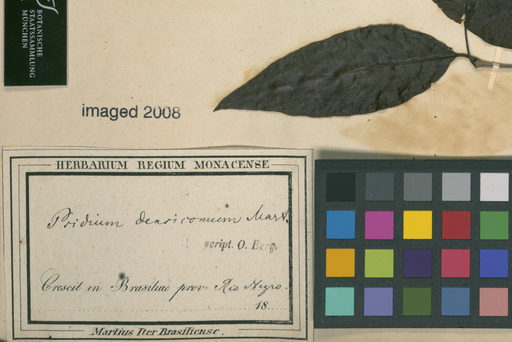 BOTANISCHE
STAATSSAMMLUNG
MÜNCHEN
imaged 2008
HERBARIUM REGIUM MONACENSE
Psidium densicomum Mart.
script. O. Berg.
Crescit in Brasiliae prov. Rio Negro.
18
Martius Iter Brasiliense.